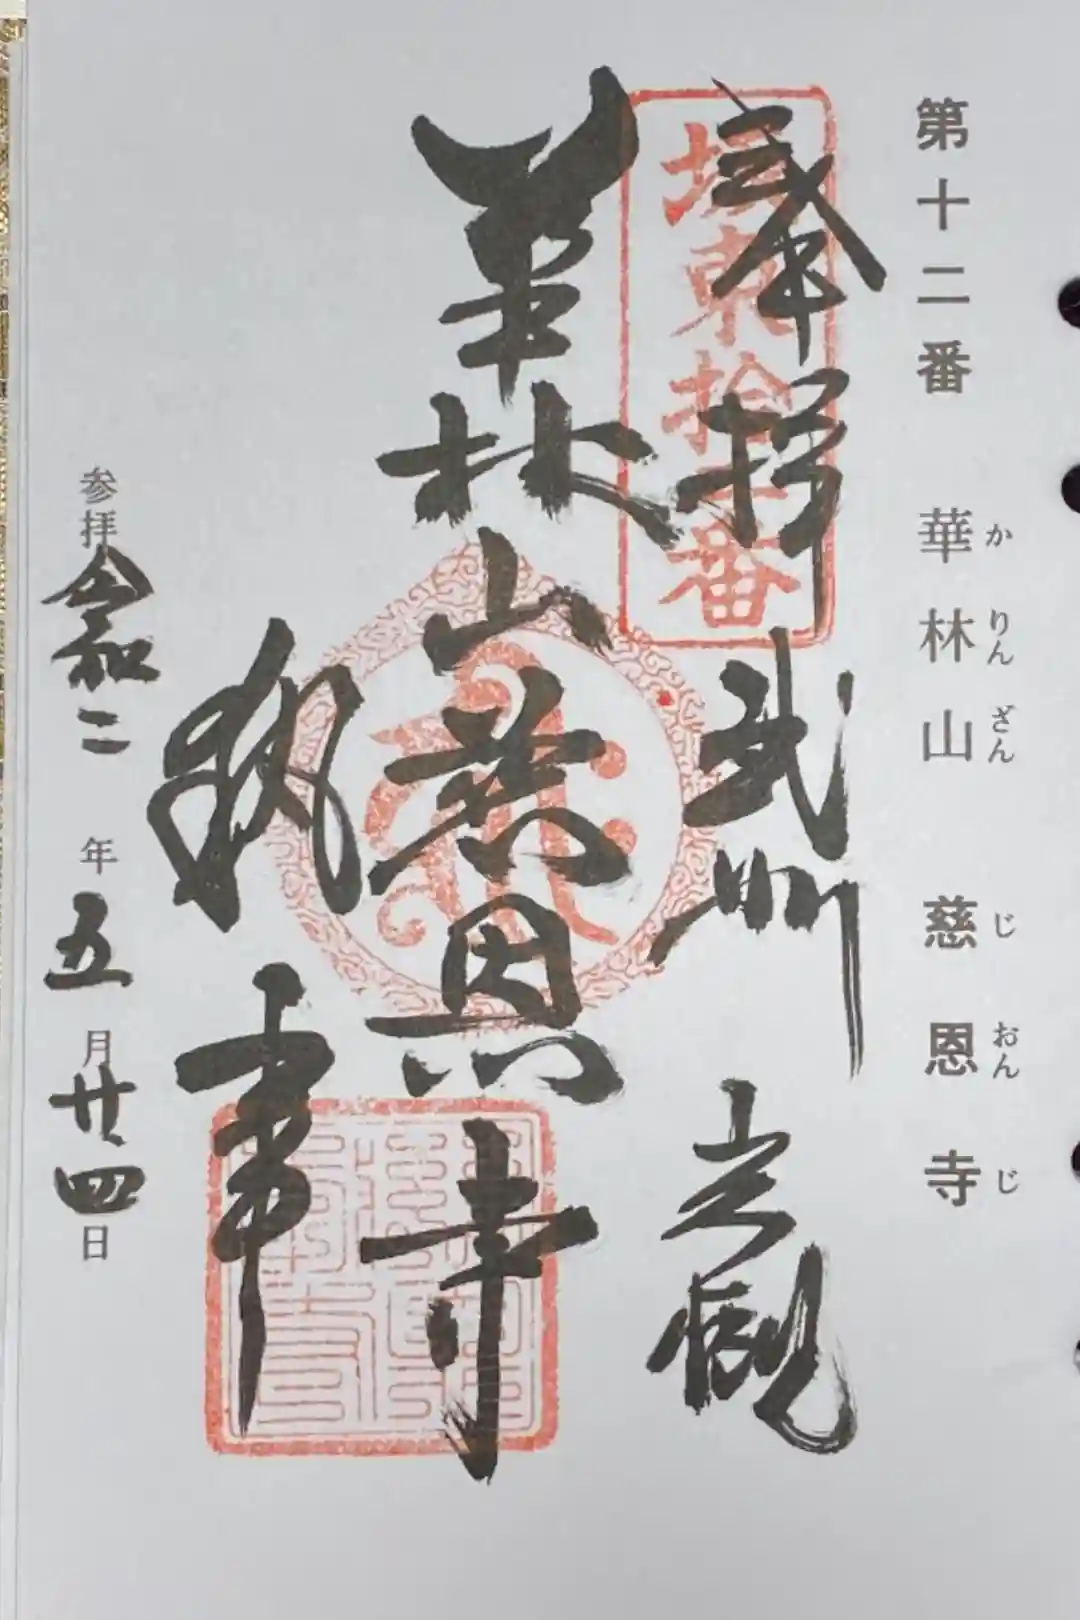 第十二番 華林山 慈恩寺
かりんざん じおんじ
奉拝 武州 岩槻
坂東拾二番
華林山慈恩寺
執事
参拝 令和二年五月廿四日